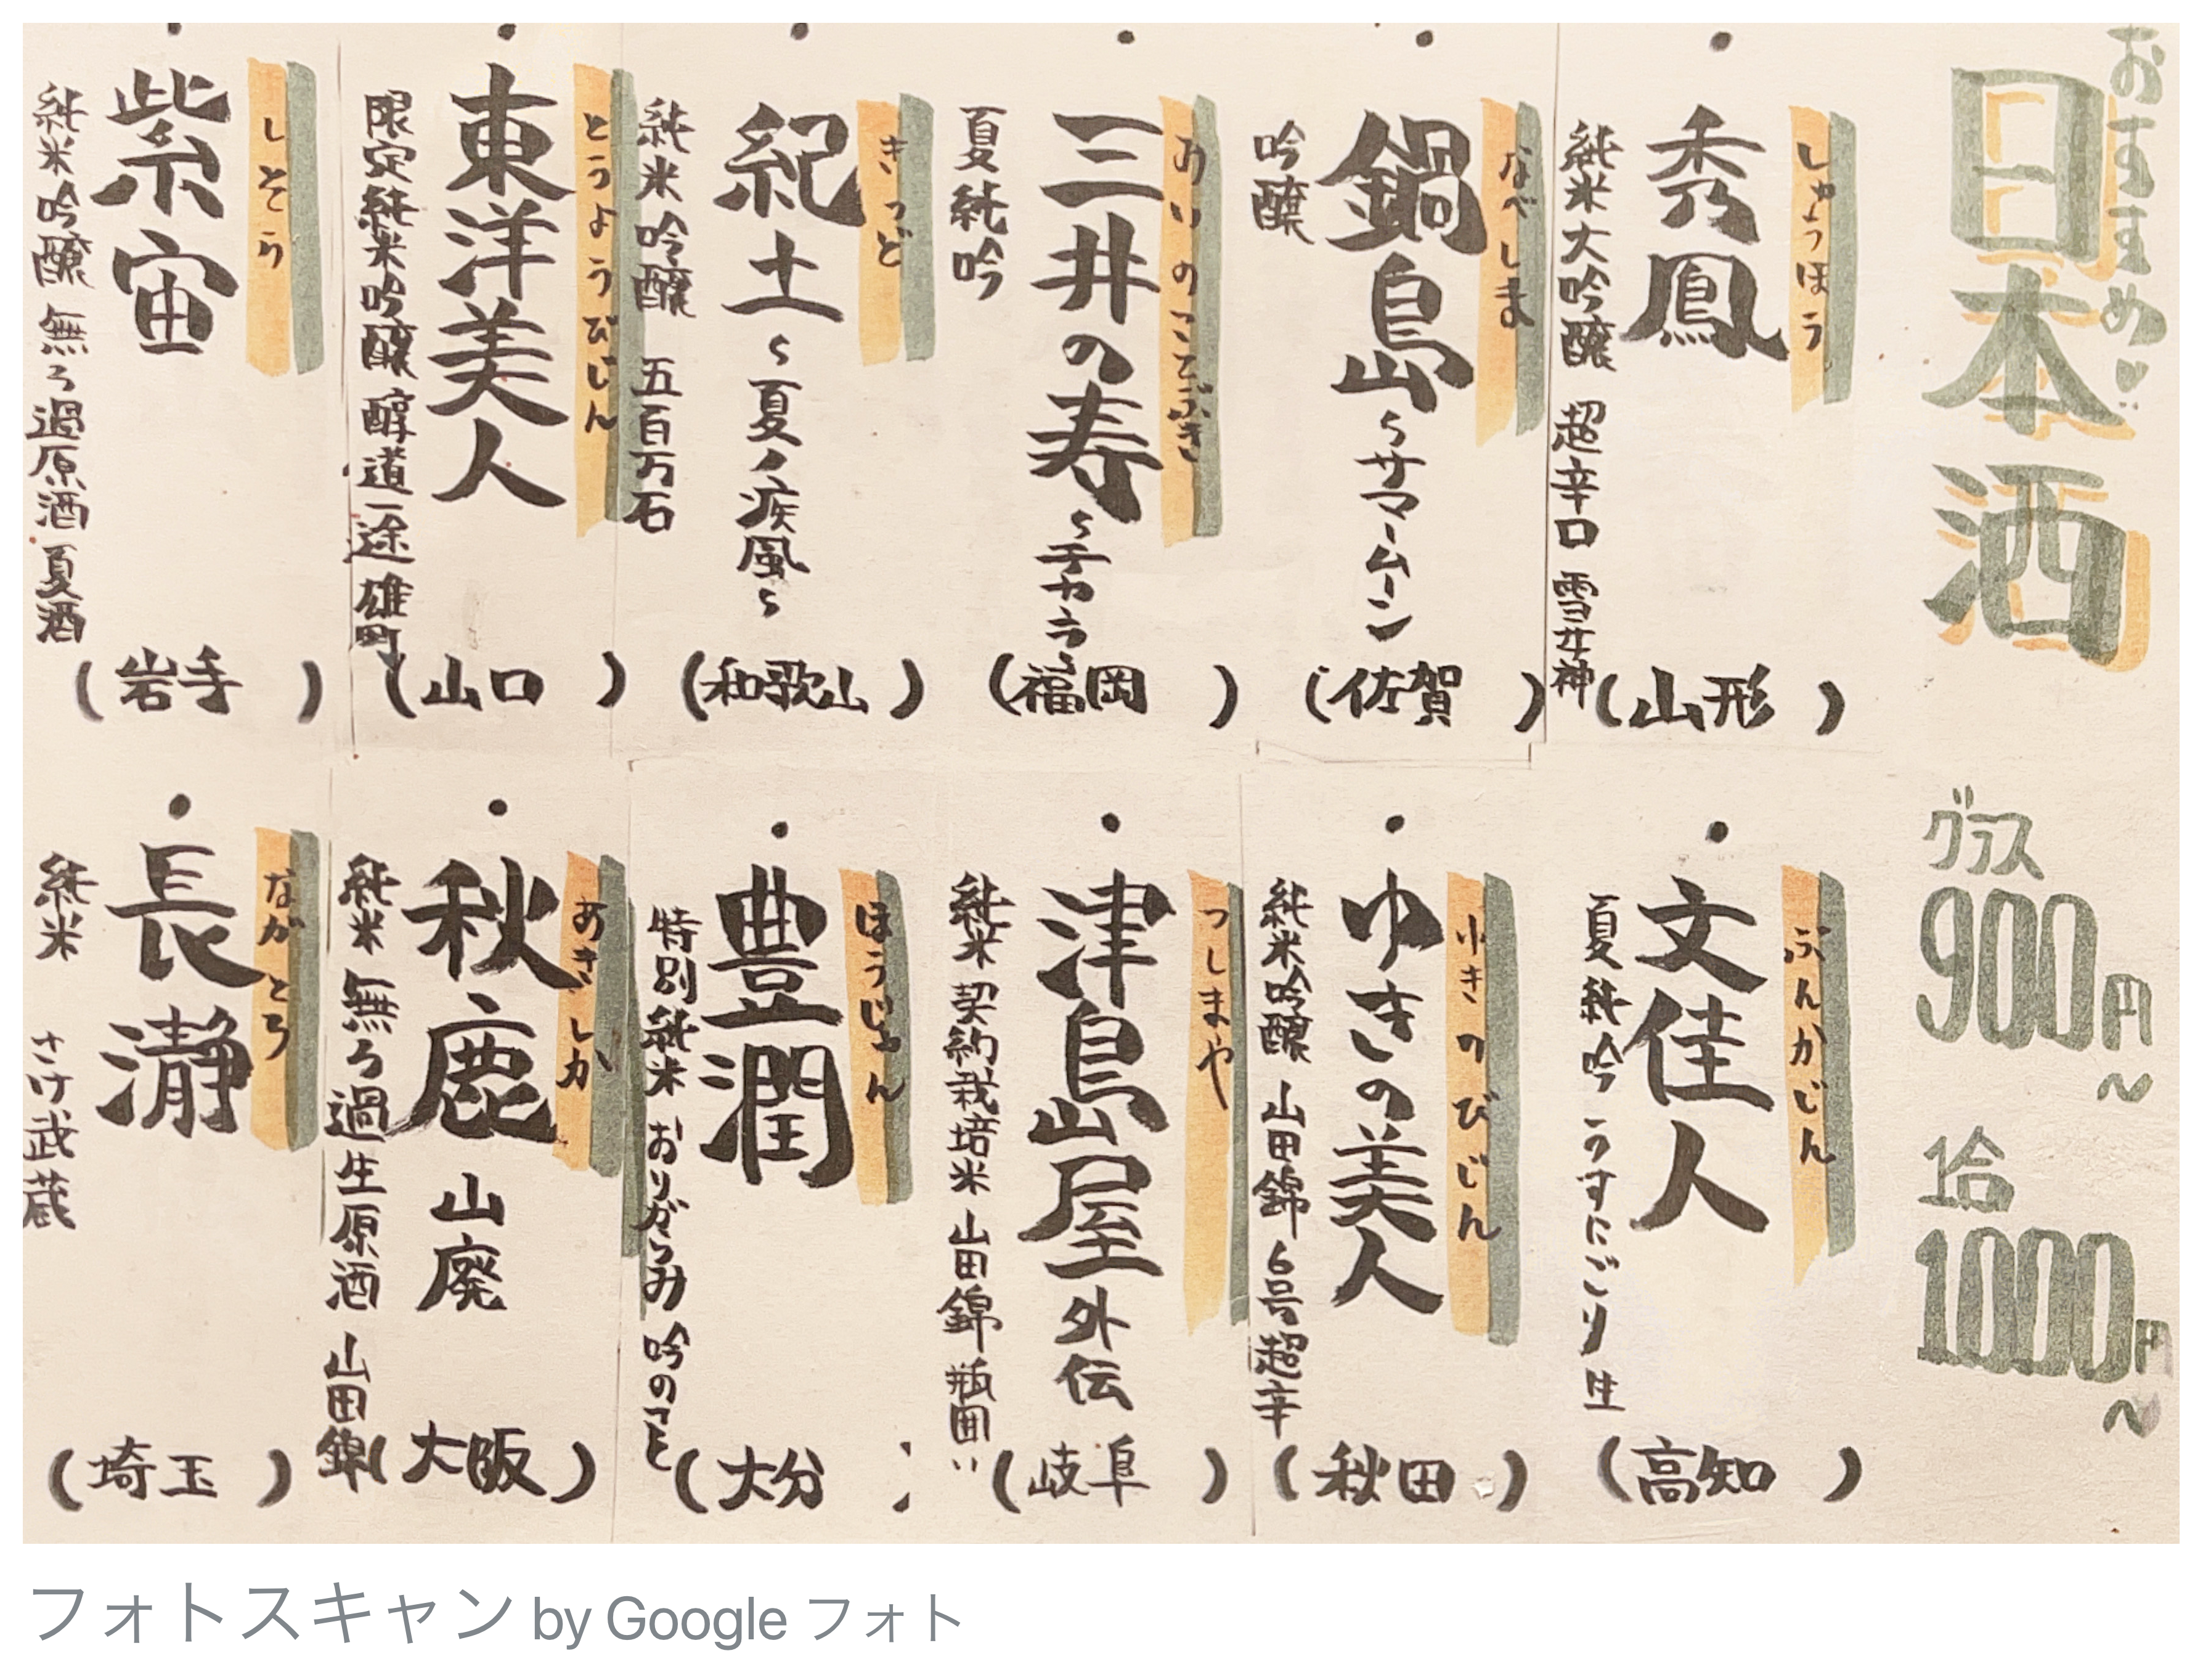 おすすめ!!
日本酒
グラス
900円~
1合
1000円~
・秀鳳
しゅうほう
純米大吟醸 超辛口 雪女神
(山形)
・鍋島~サマームーン
なべしま
吟醸
(佐賀)
・三井の寿~チカラ~
みいのことぶき
夏純吟
(福岡)
・紀土~夏ノ疾風~
きっど
純米吟醸 五百万石
(和歌山)
・東洋美人
とうようびじん
限定純米吟醸 醇道一途 雄町
(山口)
・紫宙
しそら
純米吟醸 無ろ過原酒 夏酒
(岩手)
・文佳人
ぶんかじん
夏純吟 うすにごり 生
(高知)
・ゆきの美人
ゆきのびじん
純米吟醸 山田錦 6号超辛
(秋田)
・津島屋外伝
つしまや
純米 契約栽培米 山田錦 瓶囲い
(岐阜)
・豊潤
ほうじゅん
特別純米 おりがらみ 吟のこと
(大分)
・秋鹿 山廃
あきしか
純米 無ろ過生原酒 山田錦
(大阪)
・長瀞
ながとろ
純米 さけ武蔵
(埼玉)
フォトスキャン by Google フォト